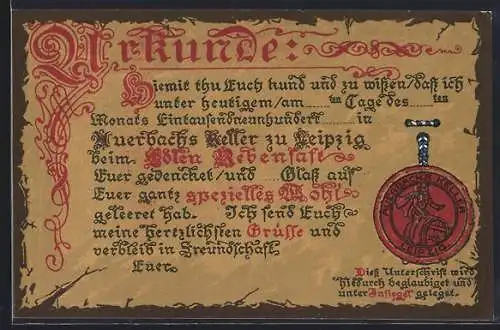 Urkunde:
Hiemit thu Euch kund und zu wißen/daß ich
unter heutigem/am......ten Tage des......ten
Monats Eintausendneunhundert............in
Auerbachs Keller zu Leipzig
beim Edlen Rebensaft
Euer gedencket/und......Glaß auf
Euer gantz spezielles Wohl
geleeret hab. Ich send Euch
meine hertzlichsten Grüsse und
verbleib in Freundschaft
Euer.
AUERBACHS KELLER
LEIPZIG
Dieß Unterschrift wird
hiedurch beglaubiget und
unter Insiegel gelegt.